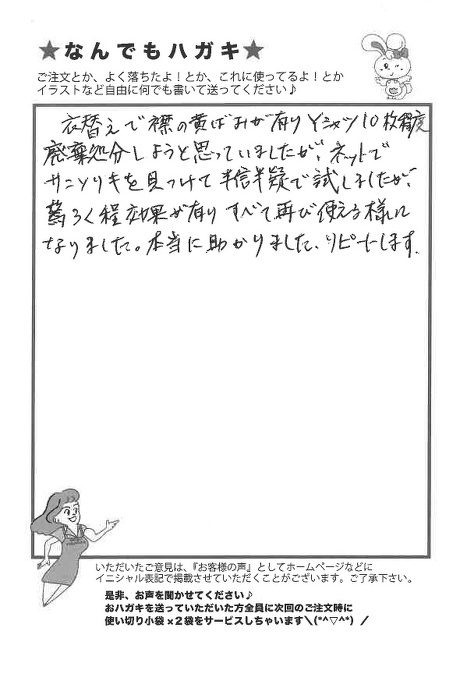 ★なんでもハガキ★
ご注文とか、よく落ちたよ！とか、これに使ってるよ！とか
イラストなど自由に何でも書いて送ってください♪
衣替えで襟の黄ばみが有りYシャツ10枚程度
廃棄処分しようと思っていましたが、ネットで
サンソリキを見つけて半信半疑で試しましたが、
驚ろく程効果が有りすべて再び使える様に
なりました。本当に助かりました、リピートします。
いただいたご意見は、『お客様の声』としてホームページなどに
イニシャル表記で掲載させていただくことがございます。ご了承下さい。
是非、お声を聞かせてください♪
おハガキを送っていただいた方全員に次回のご注文時に
使い切り小袋×2袋をサービスしちゃいます＼(*^▽^*) ／